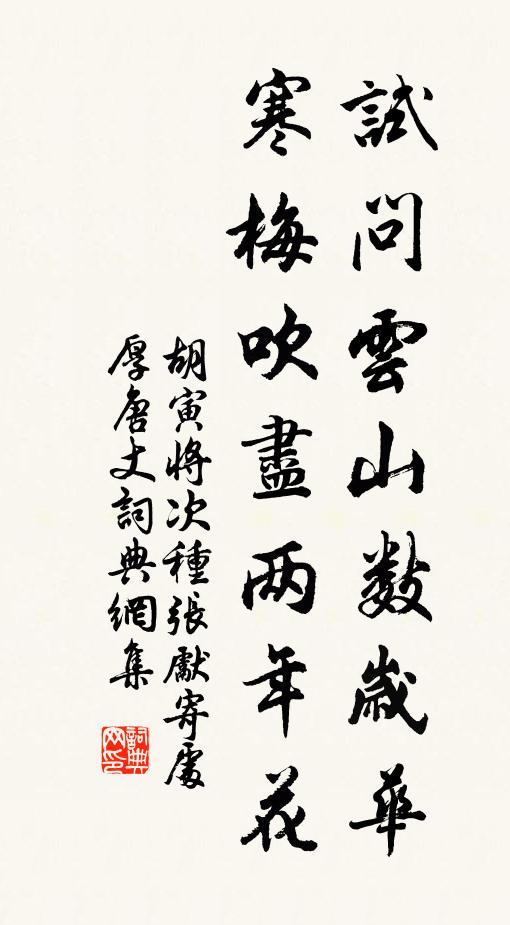 試問雲山數歲華
寒梅吹盡两年花
胡寅將次種張獻寄處
厚唐丈詞典網集
詞典网印